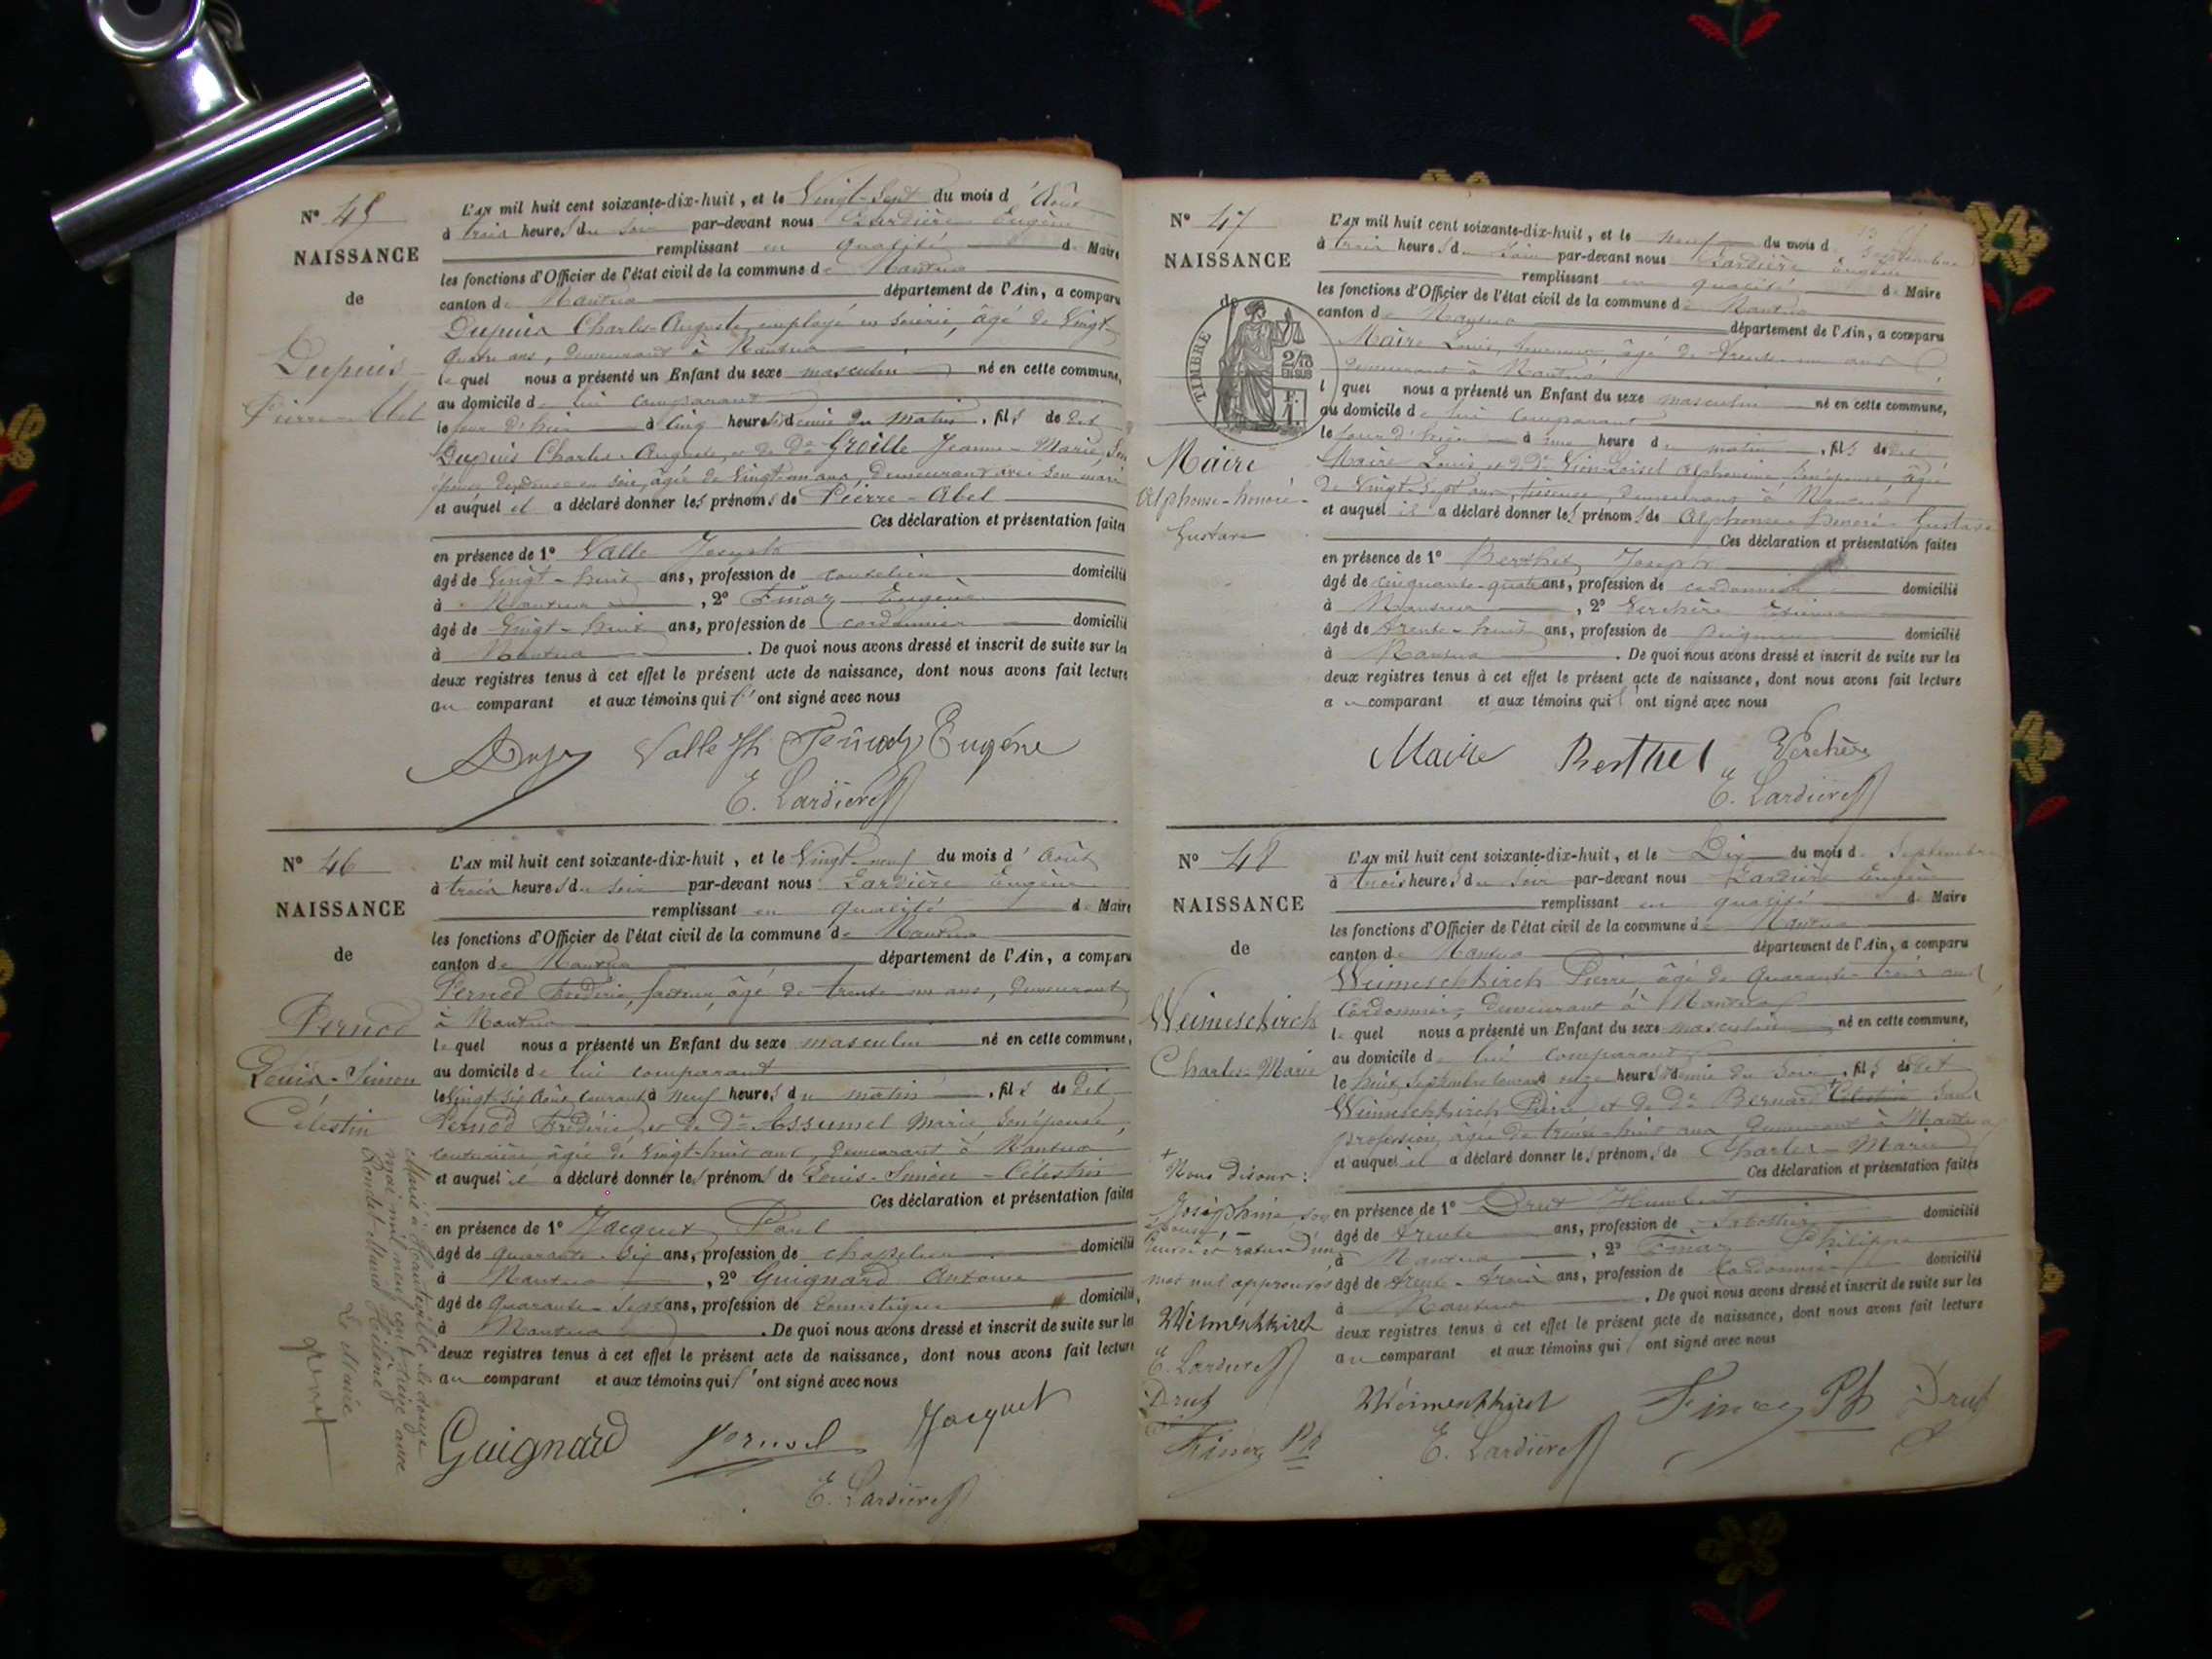 N° 45
NAISSANCE
de
Dupuis
Pierre-Abel
L'AN mil huit cent soixante-dix-huit, et le Vingt-Sept du mois d'Août
à trois heures du soir par-devant nous Lardière Eugène
remplissant en qualité de Maire
les fonctions d'Officier de l'état civil de la commune de Nantua
canton de Nantua département de l'Ain, a comparu
Dupuis Charles-Auguste, employé en soierie, âgé de Vingt-
quatre ans, demeurant à Nantua
lequel nous a présenté un Enfant du sexe masculin né en cette commune,
au domicile de lui comparant
le jour d'hier à cinq heures & demie du matin, fils de dit
Dupuis Charles-Auguste, et de De Groille Jeanne-Marie, son
épouse, en soie, âgée de Vingt-un ans demeurant avec son mari
et auquel il a déclaré donner les prénoms de Pierre-Abel
Ces déclaration et présentation faites
en présence de 1° Valle Joseph
âgé de Vingt-huit ans, profession de domicilié
à Nantua, 2° Finaz Eugène
âgé de Vingt-huit ans, profession de cordonnier domicilié
à Nantua. De quoi nous avons dressé et inscrit de suite sur les
deux registres tenus à cet effet le présent acte de naissance, dont nous avons fait lecture
au comparant et aux témoins qui l'ont signé avec nous
Valle Jh Eugène
E. Lardière
N° 46
NAISSANCE
de
Pernod
Louis-Simon
Célestin
Marié à Hauteville le douze
mai mil neuf cent treize avec
Hélène
Le Maire
L'AN mil huit cent soixante-dix-huit, et le Vingt-neuf du mois d'Août
à trois heures du soir par-devant nous Lardière Eugène
remplissant en qualité de Maire
les fonctions d'Officier de l'état civil de la commune de Nantua
canton de Nantua département de l'Ain, a comparu
Pernod Frédéric, facteur, âgé de trente un ans, demeurant
à Nantua
lequel nous a présenté un Enfant du sexe masculin né en cette commune,
au domicile de lui comparant
le Vingt Six Août courant à neuf heures du matin, fils de dit
Pernod Frédéric, et de De Assumel Marie, son épouse,
couturière âgée de Vingt-huit ans, demeurant à Nantua
et auquel il a déclaré donner les prénoms de Louis-Simon-Célestin
Ces déclaration et présentation faites
en présence de 1° Jacquet Paul
âgé de quarante-six ans, profession de chapelier domicilié
à Nantua, 2° Guignard Antoine
âgé de quarante-sept ans, profession de domestique domicilié,
à Nantua. De quoi nous avons dressé et inscrit de suite sur les
deux registres tenus à cet effet le présent acte de naissance, dont nous avons fait lecture
au comparant et aux témoins qui l'ont signé avec nous
Guignard Pernod Jacquet
E. Lardière
N° 47
NAISSANCE
de
TIMBRE
2/10
EN SUS
Maire
Alphonse-honoré-
Gustave
L'AN mil huit cent soixante-dix-huit, et le neuf du mois de Septembre
à trois heures du soir par-devant nous Lardière Eugène
remplissant en qualité de Maire
les fonctions d'Officier de l'état civil de la commune de Nantua
canton de Nantua département de l'Ain, a comparu
Maire Louis, âgé de trente-un ans
demeurant à Nantua
lequel nous a présenté un Enfant du sexe masculin né en cette commune,
au domicile de lui comparant
le jour d'hier à une heure du matin, fils de dit
Maire Louis et de De Alphonsine, son épouse, âgée
de Vingt-Sept ans, demeurant à Nantua
et auquel il a déclaré donner les prénoms de Alphonse-honoré-Gustave
Ces déclaration et présentation faites
en présence de 1° Berthet Joseph
âgé de cinquante-quatre ans, profession de cordonnier domicilié
à Nantua, 2° Verchère Etienne
âgé de trente-huit ans, profession de domicilié
à Nantua. De quoi nous avons dressé et inscrit de suite sur les
deux registres tenus à cet effet le présent acte de naissance, dont nous avons fait lecture
au comparant et aux témoins qui l'ont signé avec nous
Maire Berthet Verchère
E. Lardière
N° 48
NAISSANCE
de
Weimeschkirch
Charles-Marie
+ Nous disons:
Joséphine, son
épouse,
mot nul approuvés
Weimeschkirch
E. Lardière
Drut
Finaz Ph
L'AN mil huit cent soixante-dix-huit, et le Dix du mois de Septembre
à trois heures du soir par-devant nous Lardière Eugène
remplissant en qualité de Maire
les fonctions d'Officier de l'état civil de la commune de Nantua
canton de Nantua département de l'Ain, a comparu
Weimeschkirch Pierre, âgé de quarante-trois ans,
Cordonnier, demeurant à Nantua
lequel nous a présenté un Enfant du sexe masculin né en cette commune,
au domicile de lui comparant
le huit Septembre courant à onze heures & demie du soir, fils de dit
Weimeschkirch Pierre et de De Bernard + Célestine sans
profession, âgée de trente-huit ans demeurant à Nantua
et auquel il a déclaré donner les prénoms de Charles-Marie
Ces déclaration et présentation faites
en présence de 1° Drut Humbert
âgé de trente ans, profession de Sabottier domicilié
à Nantua, 2° Finaz Philippe
âgé de trente-trois ans, profession de Cordonnier domicilié
à Nantua. De quoi nous avons dressé et inscrit de suite sur les
deux registres tenus à cet effet le présent acte de naissance, dont nous avons fait lecture
au comparant et aux témoins qui l'ont signé avec nous
Weimeschkirch Finaz Ph Drut
E. Lardière